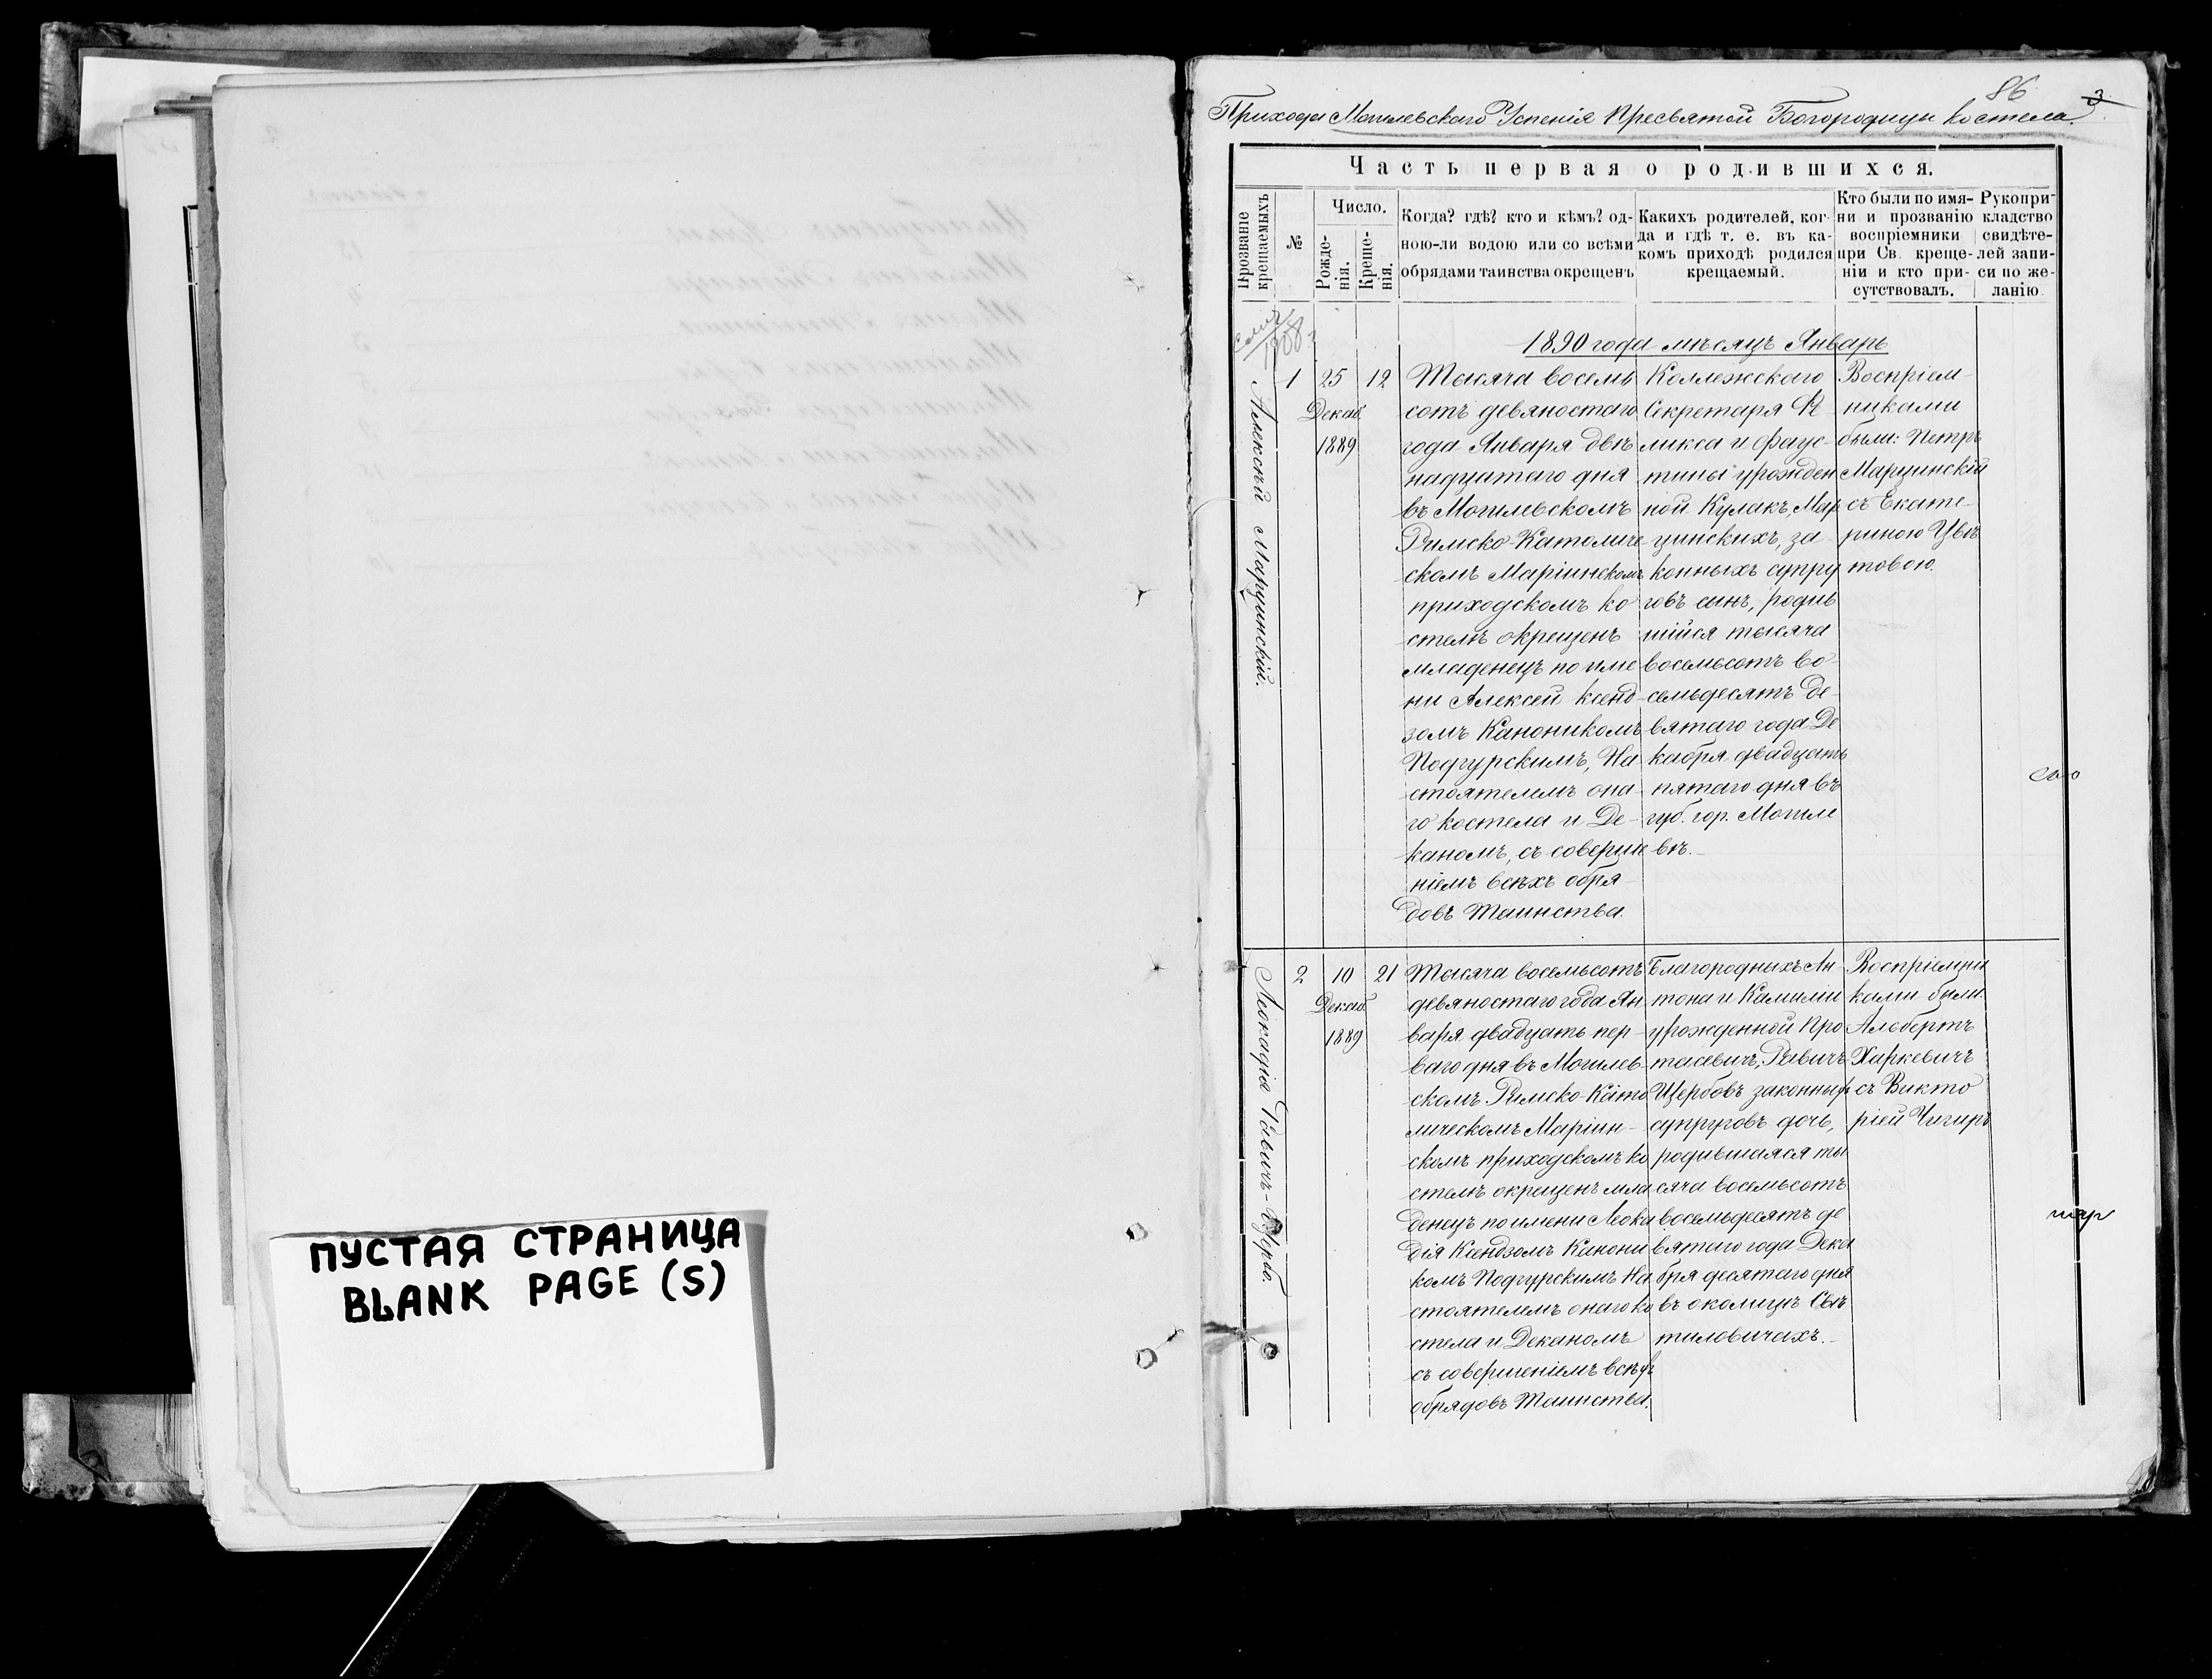 ПУСТАЯ СТРАНИЦА
BLANK PAGE (S)
86
3
Прихода Могилевскаго Успенія Пресвятой Богородицы костела.
Часть первая о родившихся.
Прозваніе крещаемыхъ
№
Число.
Рожде-
нія.
Креще-
нія.
Когда? гдѣ? кто и кѣмъ? од-
ною-ли водою или со всѣми
обрядами таинства окрещенъ
Какихъ родителей, ког-
да и гдѣ т. е. въ ка-
комъ приходѣ родился
крещаемый.
Кто были по имя-
ни и прозванію
воспріемники
при Св. креще-
ніи и кто при-
сутствовалъ.
Рукопри-
кладство
свидѣте-
лей запи-
си по же-
ланію
1890 года мѣсяцъ Январь
1908
Алексѣй Марцинскій.
1
25
Декаб.
1889
12
Тысяча восемь
сотъ девяностаго
года Января двѣ
надцатаго дня
въ Могилевскомъ
Римско-Католиче
скомъ Маріинскомъ
приходскомъ ко
стелѣ окрещенъ
младенецъ по име
ни Алексѣй Ксенд-
зомъ Каноникомъ
Подгурскимъ, На
стоятелемъ она
го костела и Де-
каномъ, съ соверше
ніемъ всѣхъ обря-
довъ Таинства.
Коллежскаго
Секретаря Фе
ликса и Фаус-
тины урожден
ной Кулакъ, Мар
цинскихъ, за
конныхъ супру
говъ сынъ, родив
шійся тысяча
восемьсотъ во-
семьдесятъ де-
вятаго года Де
кабря двадцать
пятаго дня въ
губ. гор. Могиле
вѣ.-
Воспріем-
никами
были: Петръ
Марцинскій
съ Екате-
риною Цвѣ
товою.
Леокадія Равичъ-Щербо.
2
10
Декаб.
1889
21
Тысяча восемьсотъ
девяностаго года Ян
варя двадцать пер-
ваго дня въ Могилев-
скомъ Римско-Като
лическомъ Маріин-
скомъ приходскомъ ко
стелѣ окрещенъ мла
денецъ по имени Леока
дія Ксендзомъ Канони
комъ Подгурскимъ На
стоятелемъ онаго ко
стела и Деканомъ
съ совершеніемъ всѣхъ
обрядовъ Таинства.
Благородныхъ Ан-
тона и Камиліи
урожденной Про
тасевичъ, Равичъ
Щербовъ законныхъ
супруговъ дочь,
родившаяся ты
сяча восемьсотъ
восемьдесятъ де
вятаго года Дека
бря десятаго дня
въ околицѣ Свѣ
тиловичахъ.-
Воспріемни
ками были
Альбертъ
Харкевичъ
съ Викто
ріей Чигиръ